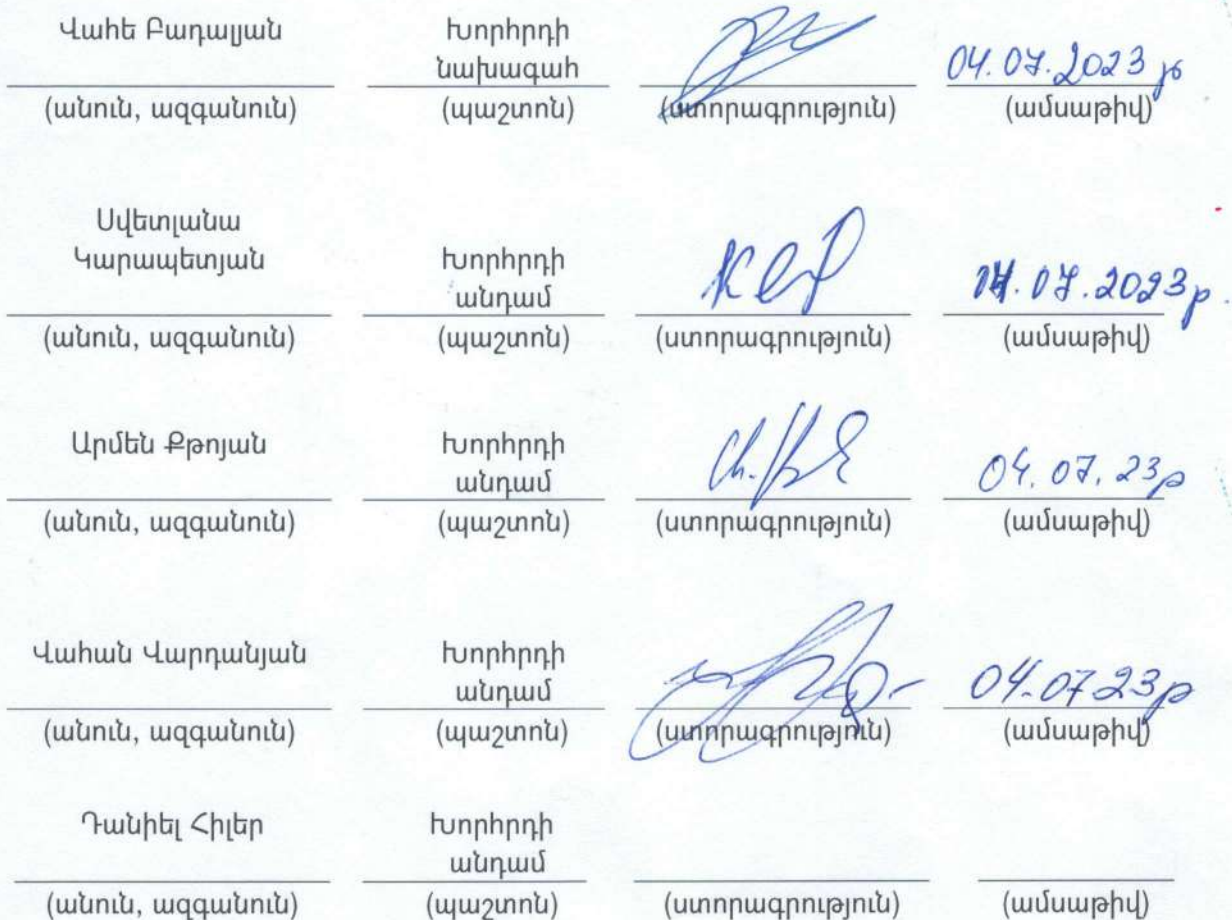 Վահե Բադալյան Խորհրդի
նախագահ 04.07.2023թ
(անուն, ազգանուն) (պաշտոն) (ստորագրություն) (ամսաթիվ)
Սվետլանա
Կարապետյան Խորհրդի
անդամ 04.07.2023թ.
(անուն, ազգանուն) (պաշտոն) (ստորագրություն) (ամսաթիվ)
Արմեն Քթոյան Խորհրդի
անդամ 04.07.23թ
(անուն, ազգանուն) (պաշտոն) (ստորագրություն) (ամսաթիվ)
Վահան Վարդանյան Խորհրդի
անդամ 04.07.23թ
(անուն, ազգանուն) (պաշտոն) (ստորագրություն) (ամսաթիվ)
Դանիել Հիլեր Խորհրդի
անդամ
(անուն, ազգանուն) (պաշտոն) (ստորագրություն) (ամսաթիվ)